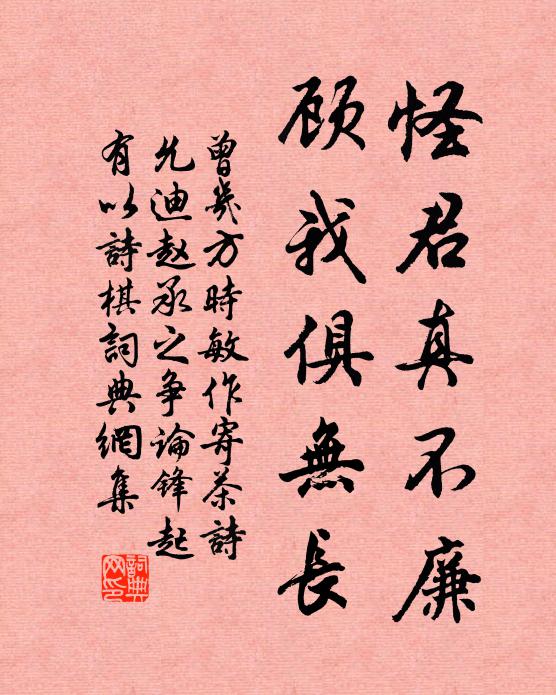 怪君真不廉
顾我俱無長
曾幾方時敏作寄茶詩
允迪赵承之争論锋起
有以詩棋詞典網集
詞典網印